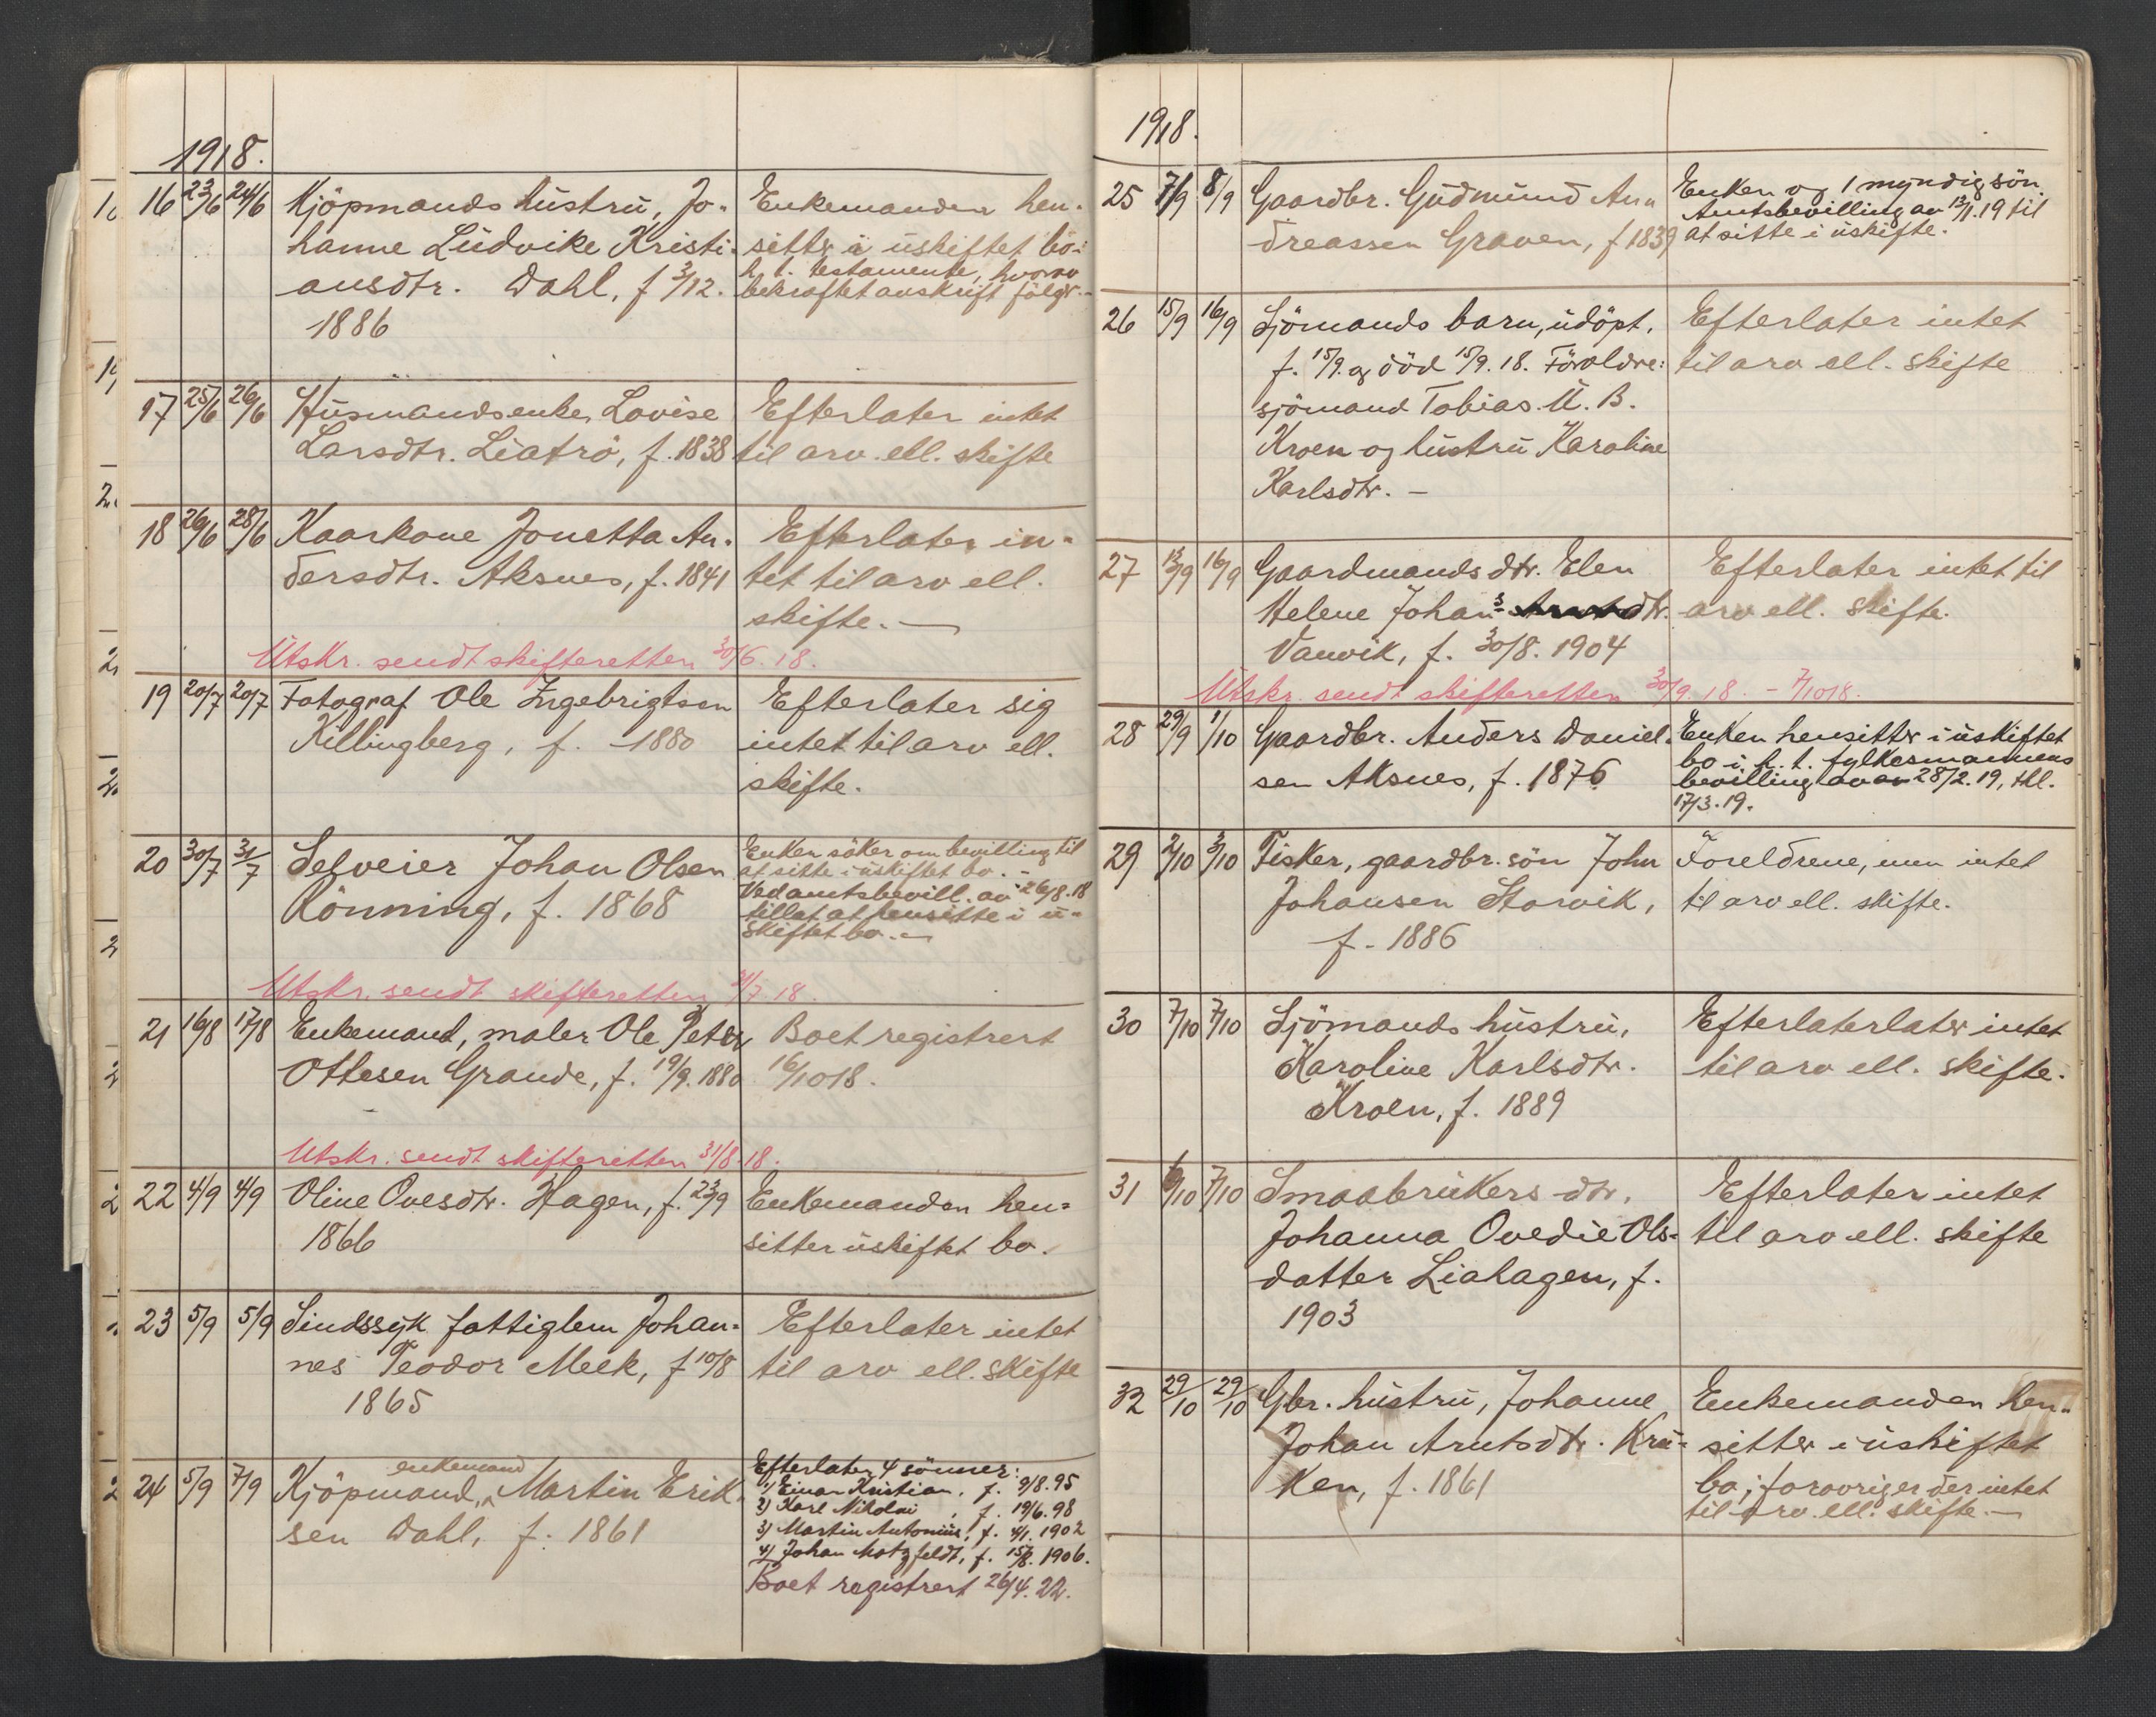 1918.
16 23/6 24/6 Kjöpmands hustru, Jo- Enkemanden hen-
hanne Ludvike Kristi- sitter i uskiftet bo i
ansdtr. Dahl, f 3/12. h. t. testamente, hvorav
bekræftet avskrift følger.-
1886
17 25/6 26/6 Husmandsenke, Lovise Efterlater intet
Larsdtr. Liatrø, f. 1838 til arv. ell. skifte
18 26/6 28/6 Kaarkone Jonetta An- Efterlater in-
dersdtr. Aksnes, f. 1841 tet til arv ell.
skifte. —
Utskr. sendt skifteretten 30/6. 18.
19 20/7 20/7 Fotograf Ole Ingebrigtsen Efterlater sig
Killingberg, f. 1880 intet til arv ell.
skifte.
20 30/7 31/7 Selveier Johan Olsen Enken söker om bevilling til
at sitte i uskiftet bo. -
Rönning, f. 1868 Ved amtsbevill. av 26/8.18
tillat at hensitte i u-
skiftet bo. —
Utskr. sendt skifteretten 31/7 18.
21 16/8 17/8 Enkemand, maler Ole Peter Boet registrert
Ottesen Grande, f. 19/9. 1880 16/10 18.
Utskr. sendt skifteretten 31/8. 18.
22 4/9 4/9 Oline Ovesdtr. Hagen, f. 23/9 Enkemanden hen-
1866 sitter uskiftet bo.
23 5/9 5/9 Sindssyk fattiglem Johan- Efterlater intet
nes Teodor Meek, f 10/8 til arv ell. skifte
1865
24 5/9 7/9 Kjöpmand, enkemand Martin Erik- Efterlater 4 sönner:
1) Einar Kristian, f. 9/8.95
2) Karl Nikolai, f. 19/6.98
sen Dahl, f. 1861 3) Martin Antonius, f. 4/1. 1902
4) Johan Motzfeldt, f. 15/8. 1906.
Boet registrert 26/4. 22.
1918.
25 7/9 8/9 Gaardbr. Gudmund An- Enken og 1 myndig sön.
Amtsbevilling av 13/1. 19 til
dreassen Graven, f 1839 at sitte i uskifte.
26 15/9 16/9 Sjömands barn, udöpt, Efterlater intet
f. 15/9. og död 15/9. 18. Foræeldre: til arv ell. skifte
sjömand Tobias U. B.
Kroen og hustru Karoline
Karlsdtr. —
27 13/9 16/9 Gaardmands dtr. Elen Efterlater intet til
Helene Johans dtr. arv ell. skifte.
Vanvik, f. 30/8. 1904
Utskr. sendt skifteretten 30/9. 18. - 7/10 18.
28 29/9 1/10 Gaardbr. Anders Daniel- Enken hensitter i uskiftet
bo i h. t. fylkesmannens
sen Aksnes, f. 1876 bevilling av 28/2. 19, tkl.
17/3. 19.
29 2/10 3/10 Fisker, gaardbr. sön John Foreldrene, men intet
Johansen Storvik, til arv ell. skifte.
f. 1886
30 7/10 7/10 Sjömands hustru, Efterlaterlater intet
Karoline Karlsdtr. til arv ell. skifte.
Kroen, f. 1889
31 6/10 7/10 Smaabrukers dtr. Efterlater intet
Johanna Ovedie Ols- til arv ell. skifte
datter Liahagen, f.
1903
32 29/10 29/10 Gbr. hustru, Johanne Enkemanden hen-
Johan Arntsdtr. Kru- sitter i uskiftet
ken, f. 1861 bo; forøvrig er der intet
til arv. ell. skifte. —